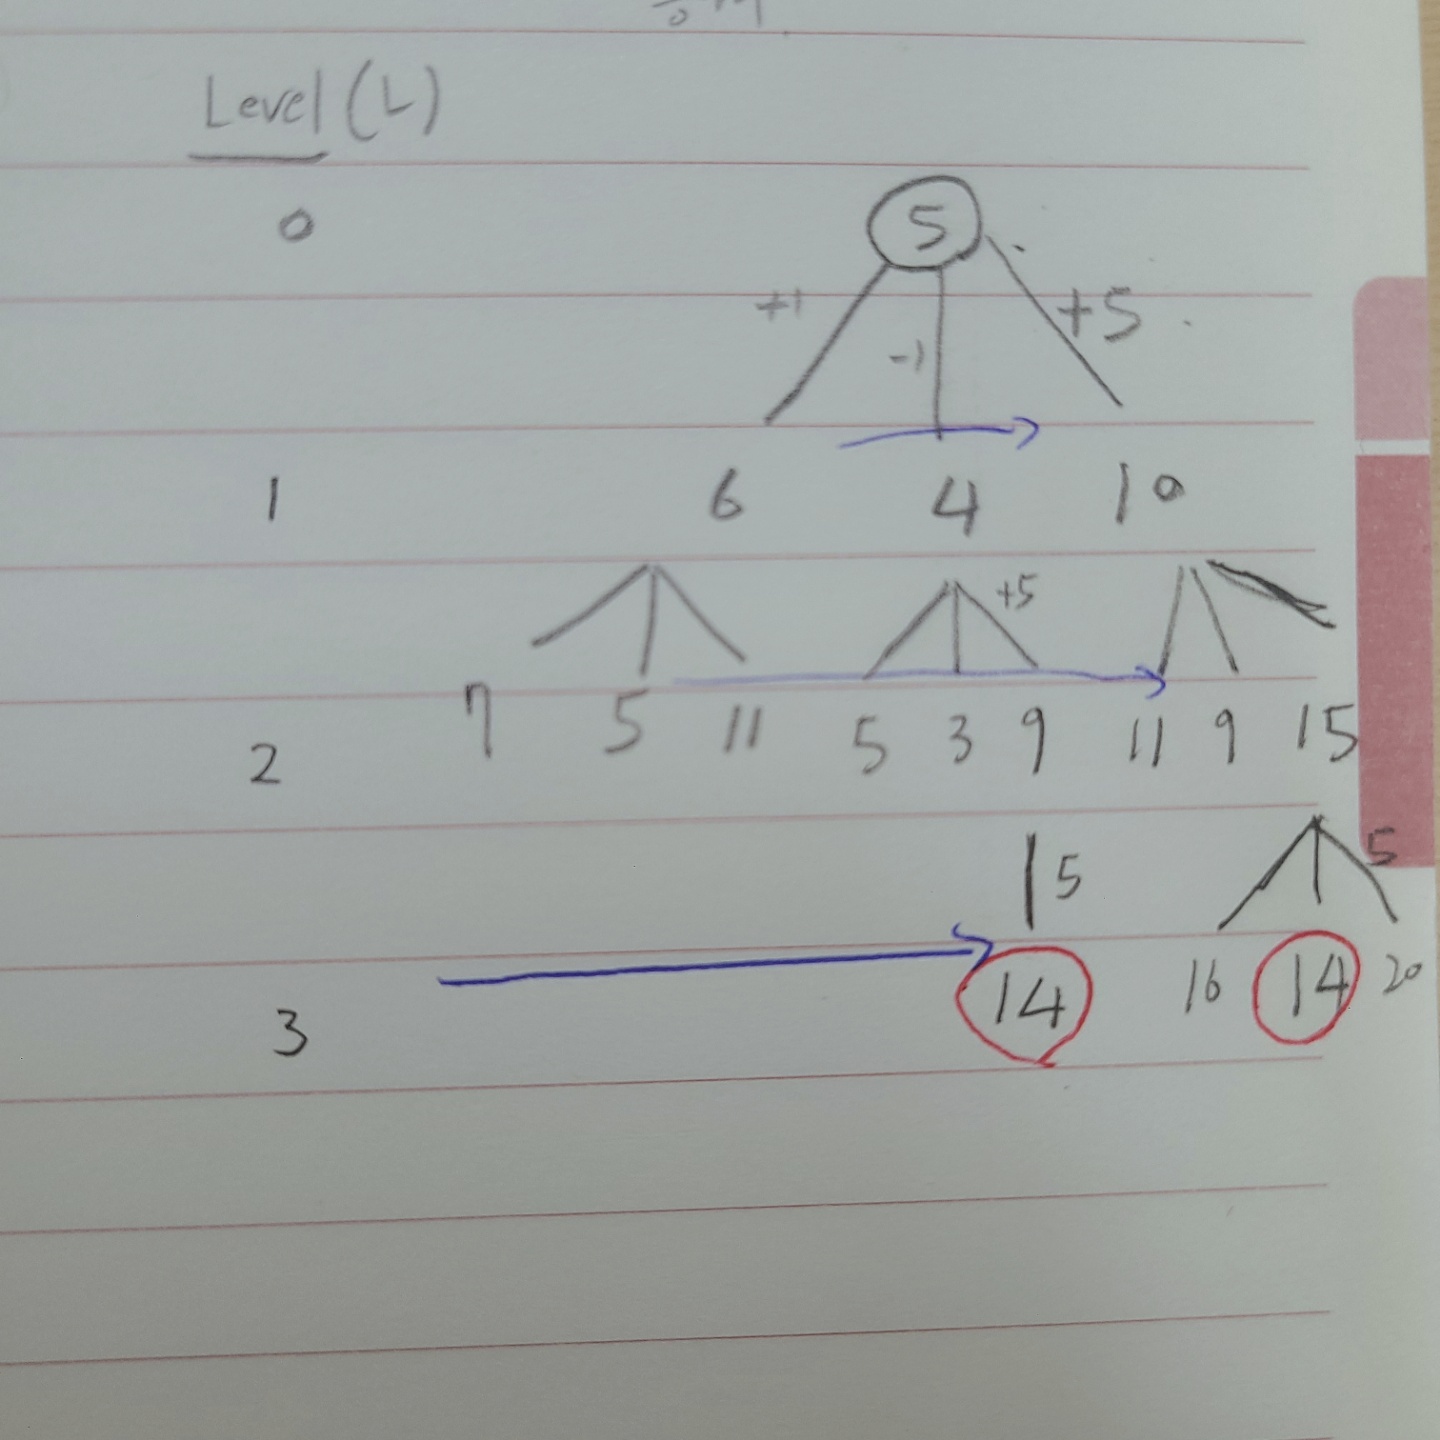 Level (L)
0 5
+1 -1 +5
1 6 4 10
+5
2 7 5 11 5 3 9 11 9 15
5 5
3 14 16 14 20